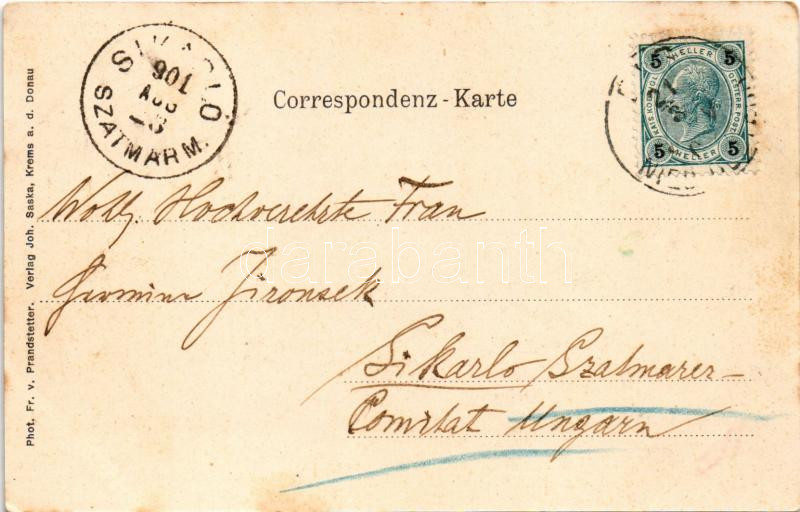 SZATMÁR M.
901
AUG
Correspondenz-Karte
5 HELLER 5
KAIS. KÖNIGL. OESTERR. POST.
5 HELLER 5
Wohlg. Hochverehrte Frau
Hermine Jironsek
Sikarlo Szatmarer-
Comitat Ungarn
Phot. Fr. v. Prandstetter. Verlag Joh. Saska, Krems a. d. Donau
darabanth